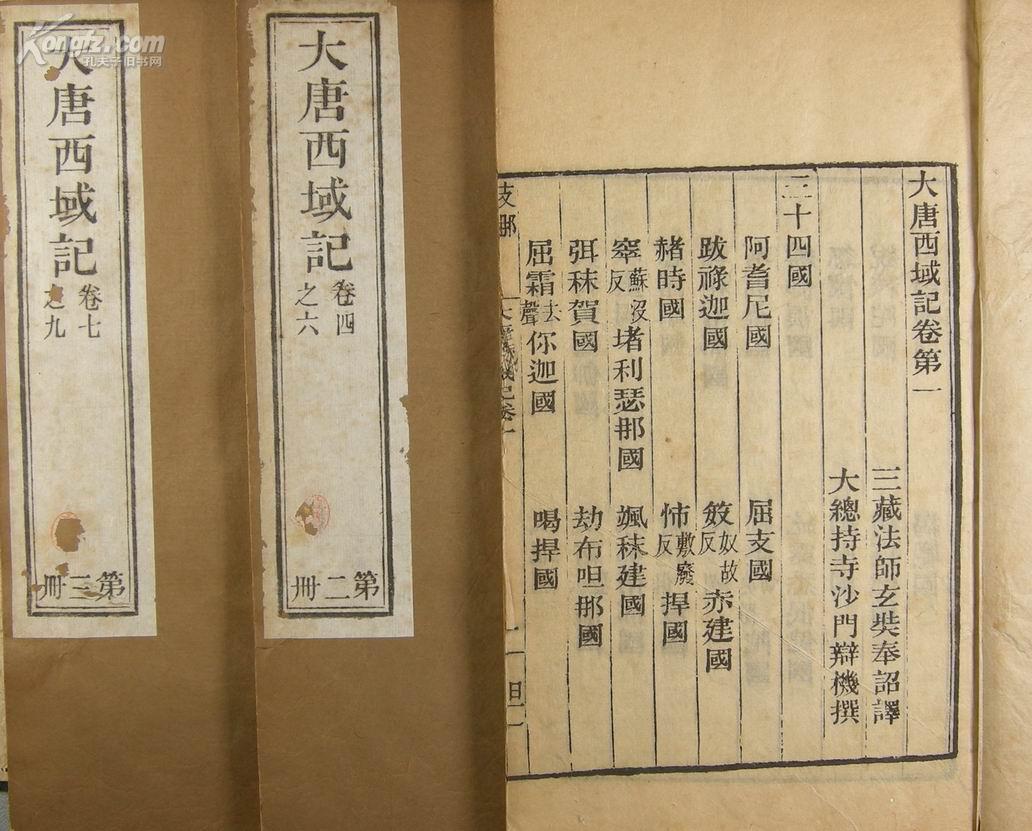 Kongfz.com
孔夫子旧书网
大唐西域記
卷七
之九
第三册
大唐西域記
卷四
之六
第二册
大唐西域記卷第一
三藏法師玄奘奉詔譯
大總持寺沙門辯機撰
三十四國
阿耆尼國 屈支國
跋祿迦國 笯奴故反赤建國
赭時國 㤄敷廢反捍國
窣蘇沒反堵利瑟那國 颯秣建國
弭秣賀國 劫布呾那國
屈霜去聲你迦國 喝捍國
支那
大唐西域記卷一